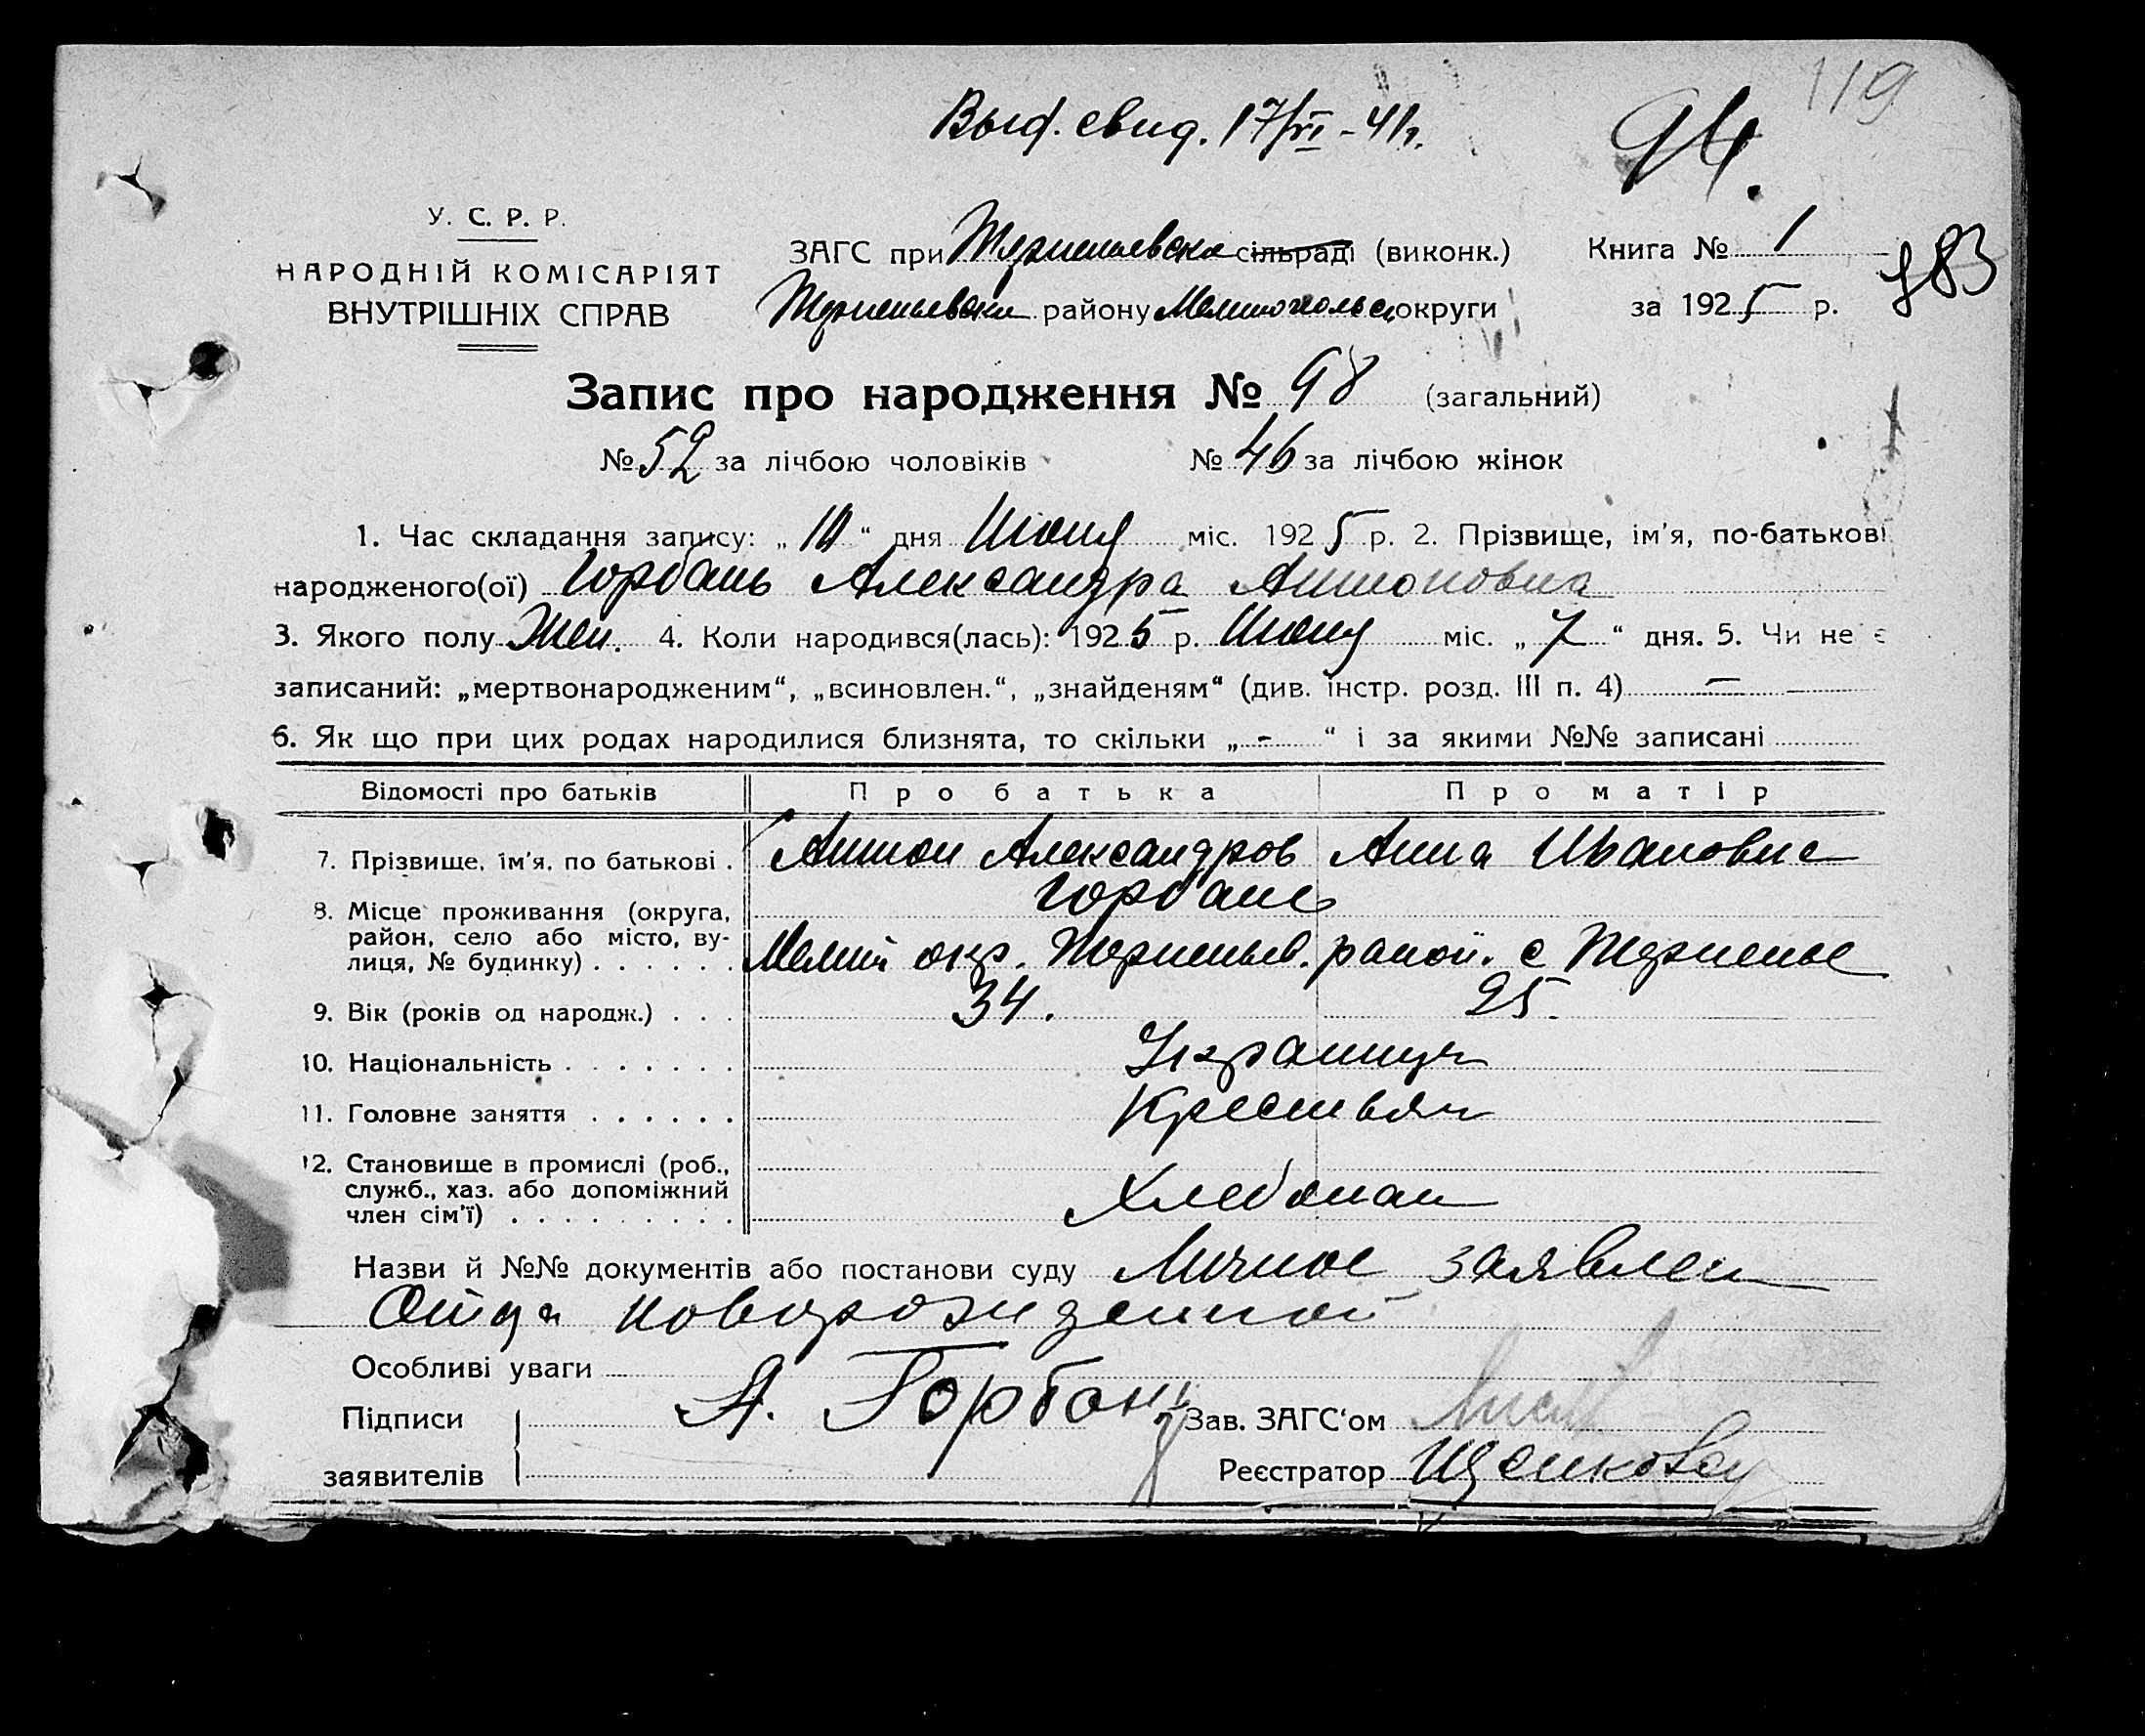 119
Выд. свид. 17/VI-41г.
94.
У. С. Р. Р.
НАРОДНІЙ КОМІСАРІЯТ
ВНУТРІШНІХ СПРАВ
ЗАГС при сільраді (виконк.)
району Мелитопольск округи
Книга № 1
за 1925 р.
183
Запис про народження № 98 (загальний)
№ 52 за лічбою чоловіків № 46 за лічбою жінок
1. Час складання запису: „10“ дня Июня міс. 1925 р. 2. Прізвище, ім'я, по-батькові
народженого(ої) Горбань Александра Антоновна
3. Якого полу Жен. 4. Коли народився(лась): 1925 р. Июня міс. „7“ дня. 5. Чи не є
записаний: „мертвонародженим“, „всиновлен.“, „знайденям“ (див. інстр. розд. III п. 4) —
6. Як що при цих родах народилися близнята, то скільки „-“ і за якими №№ записані
Відомості про батьків Про батька Про матір
7. Прізвище, ім'я, по батькові . Антон Александров Анна Ивановна
Горбань
8. Місце проживання (округа,
район, село або місто, ву-
лиця, № будинку) . . . . . . Мелит окр. район. с
9. Вік (років од народж.) . . . 34. 25.
10. Національність . . . . . . . Украинцы
11. Головне заняття . . . . . . Крестьян
12. Становище в промислі (роб.,
служб., хаз. або допоміжний
член сім'ї) . . . . . . . . . Хлебопаш
Назви й №№ документів або постанови суду Личное заявлен
Отца новорожденной
Особливі уваги
Підписи А. Горбань Зав. ЗАГС'ом
заявителів Реєстратор